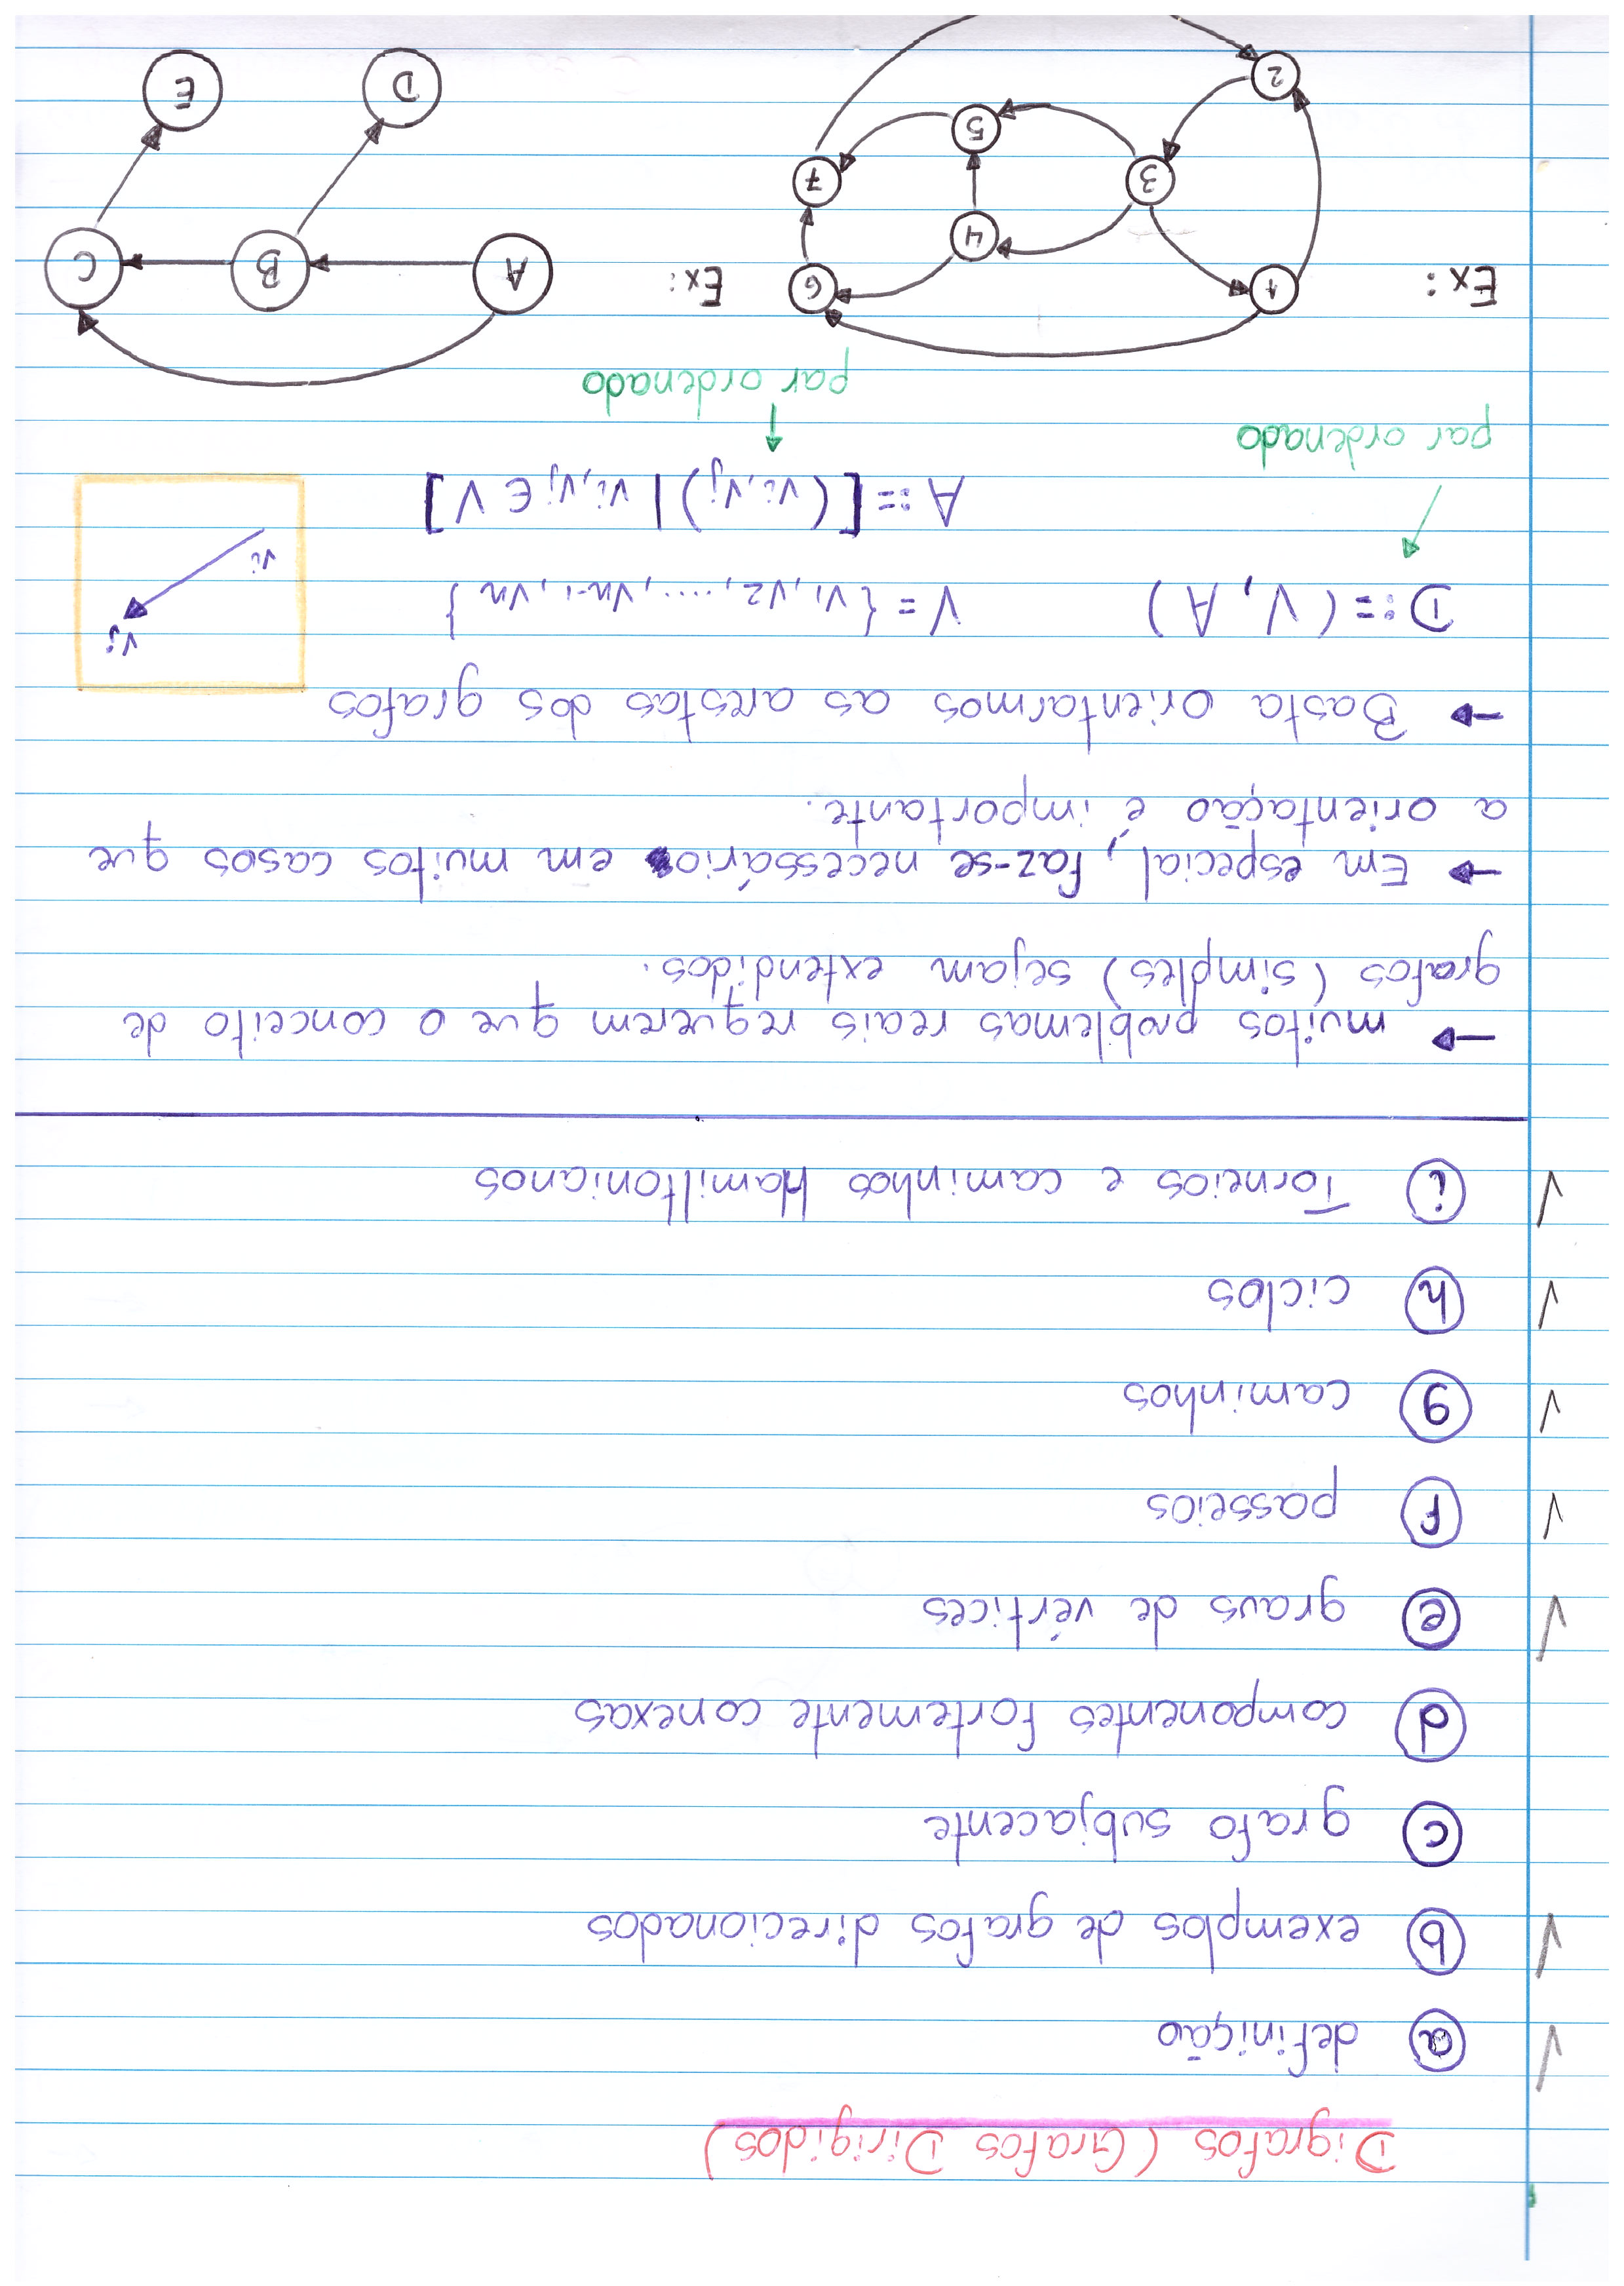 Digrafos (Grafos Dirigidos)
✓ ⓐ definição
✓ ⓑ exemplos de grafos direcionados
ⓒ grafo subjacente
ⓓ componentes fortemente conexas
✓ ⓔ graus de vértices
✓ ⓕ passeios
✓ ⓖ caminhos
✓ ⓗ ciclos
✓ ⓘ Torneios e caminhos Hamiltonianos
→ muitos problemas reais requerem que o conceito de
grafos (simples) sejam extendidos.
→ Em especial, faz-se necessário em muitos casos que
a orientação é importante.
→ Basta orientarmos as arestas dos grafos
D := (V, A) V = {v1, v2, ...., vn-1, vn}
vi vj
A := [(vi, vj) | vi, vj ∈ V]
par ordenado
par ordenado
Ex: 1 6 4 3 7 5 2
Ex: A B C D E